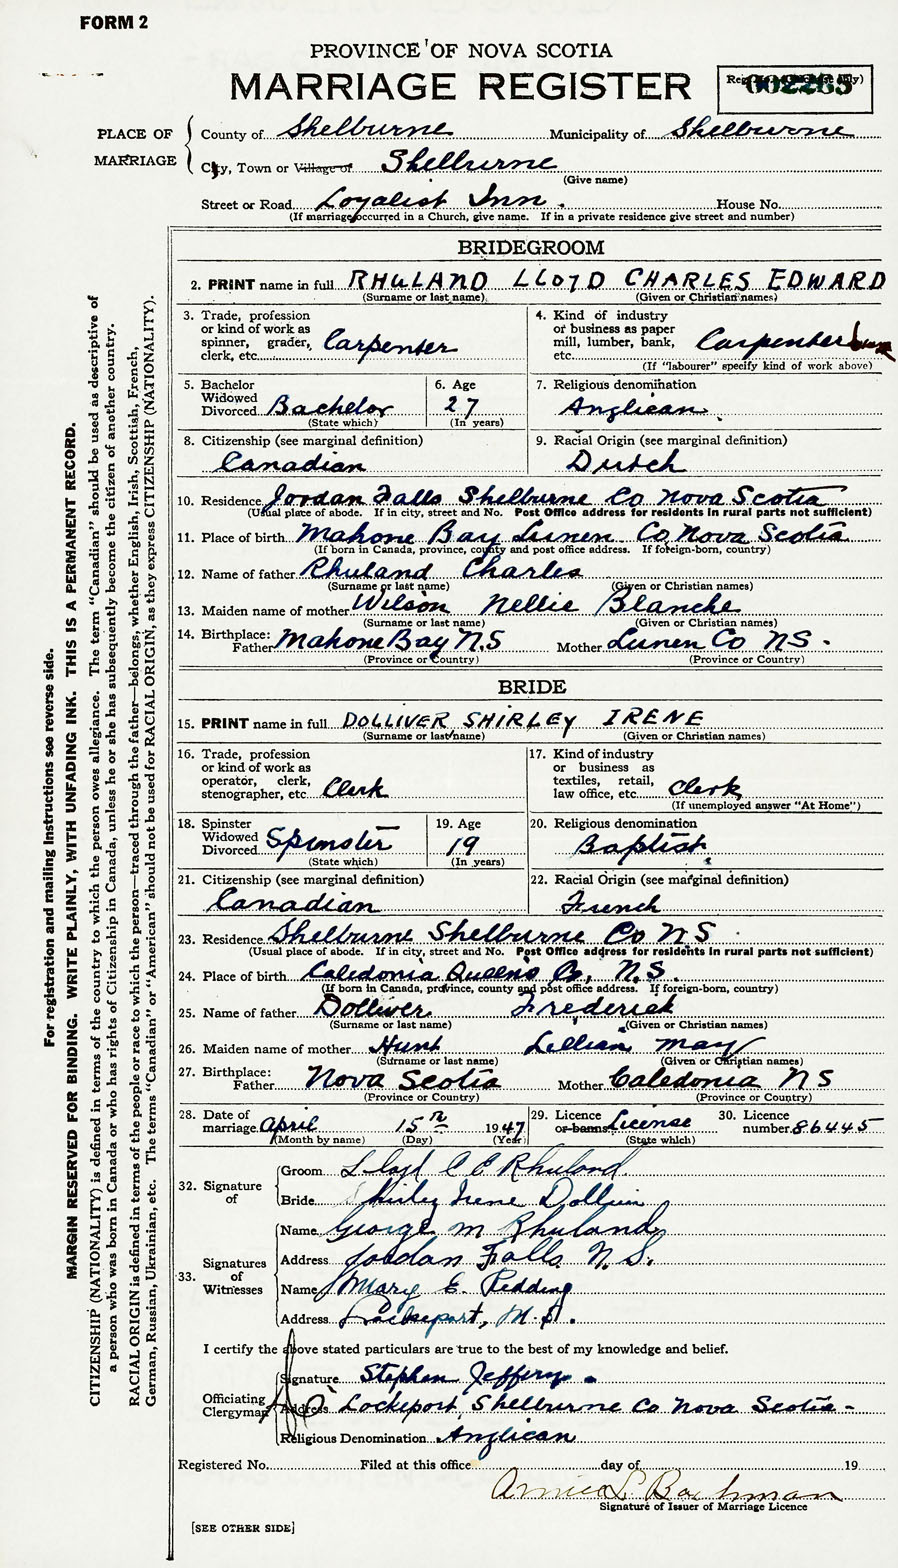 FORM 2
PROVINCE OF NOVA SCOTIA
MARRIAGE REGISTER
002265
PLACE OF MARRIAGE
County of Shelburne Municipality of Shelburne
City, Town or Village of Shelburne
(Give name)
Street or Road Loyalist Inn. House No.
(If marriage occurred in a Church, give name. If in a private residence give street and number)
BRIDEGROOM
2. PRINT name in full RHULAND LLOYD CHARLES EDWARD
(Surname or last name) (Given or Christian names)
3. Trade, profession or kind of work as spinner, grader, clerk, etc. Carpenter
4. Kind of industry or business as paper mill, lumber, bank, etc. Carpenter
(If "labourer" specify kind of work above)
5. Bachelor Widowed Divorced Bachelor
(State which)
6. Age 27
(In years)
7. Religious denomination Anglican
8. Citizenship (see marginal definition) Canadian
9. Racial Origin (see marginal definition) Dutch
10. Residence Jordan Falls Shelburne Co Nova Scotia
(Usual place of abode. If in city, street and No. Post Office address for residents in rural parts not sufficient)
11. Place of birth Mahone Bay Lunen Co Nova Scotia
(If born in Canada, province, county and post office address. If foreign-born, country)
12. Name of father Rhuland Charles
(Surname or last name) (Given or Christian names)
13. Maiden name of mother Wilson Nellie Blanche
(Surname or last name) (Given or Christian names)
14. Birthplace: Father Mahone Bay N.S Mother Lunen Co NS
(Province or Country) (Province or Country)
BRIDE
15. PRINT name in full DOLLIVER SHIRLEY IRENE
(Surname or last name) (Given or Christian names)
16. Trade, profession or kind of work as operator, clerk, stenographer, etc. Clerk
17. Kind of industry or business as textiles, retail, law office, etc. Clerk
(If unemployed answer "At Home")
18. Spinster Widowed Divorced Spinster
(State which)
19. Age 19
(In years)
20. Religious denomination Baptist
21. Citizenship (see marginal definition) Canadian
22. Racial Origin (see marginal definition) French
23. Residence Shelburne Shelburne Co NS
(Usual place of abode. If in city, street and No. Post Office address for residents in rural parts not sufficient)
24. Place of birth Caledonia Queens Co, N.S.
(If born in Canada, province, county and post office address. If foreign-born, country)
25. Name of father Dolliver Frederick
(Surname or last name) (Given or Christian names)
26. Maiden name of mother Hunt Lillian May
(Surname or last name) (Given or Christian names)
27. Birthplace: Father Nova Scotia Mother Caledonia NS
(Province or Country) (Province or Country)
28. Date of marriage April 15th 1947
(Month by name) (Day) (Year)
29. Licence or banns License
(State which)
30. Licence number 86445
32. Signature of
Groom Lloyd C E Rhuland
Bride Shirley Irene Dolliver
33. Signatures of Witnesses
Name George M Rhuland
Address Jordan Falls N.S.
Name Mary E. Redding
Address Lockeport, N.S.
I certify the above stated particulars are true to the best of my knowledge and belief.
Officiating Clergyman
Signature Stephen Jeffery.
Address Lockeport, Shelburne Co Nova Scotia
Religious Denomination Anglican
Registered No. Filed at this office day of 19
Bachman
Signature of Issuer of Marriage Licence
[SEE OTHER SIDE]
For registration and mailing instructions see reverse side.
MARGIN RESERVED FOR BINDING. WRITE PLAINLY, WITH UNFADING INK. THIS IS A PERMANENT RECORD.
CITIZENSHIP (NATIONALITY) is defined in terms of the country to which the person owes allegiance. The term "Canadian" should be used as descriptive of
a person who was born in Canada or who has rights of Citizenship in Canada, unless he or she has subsequently become the citizen of another country.
RACIAL ORIGIN is defined in terms of the people or race to which the person—traced through the father—belongs, whether English, Irish, Scottish, French,
German, Russian, Ukrainian, etc. The terms "Canadian" or "American" should not be used for RACIAL ORIGIN, as they express CITIZENSHIP (NATIONALITY).